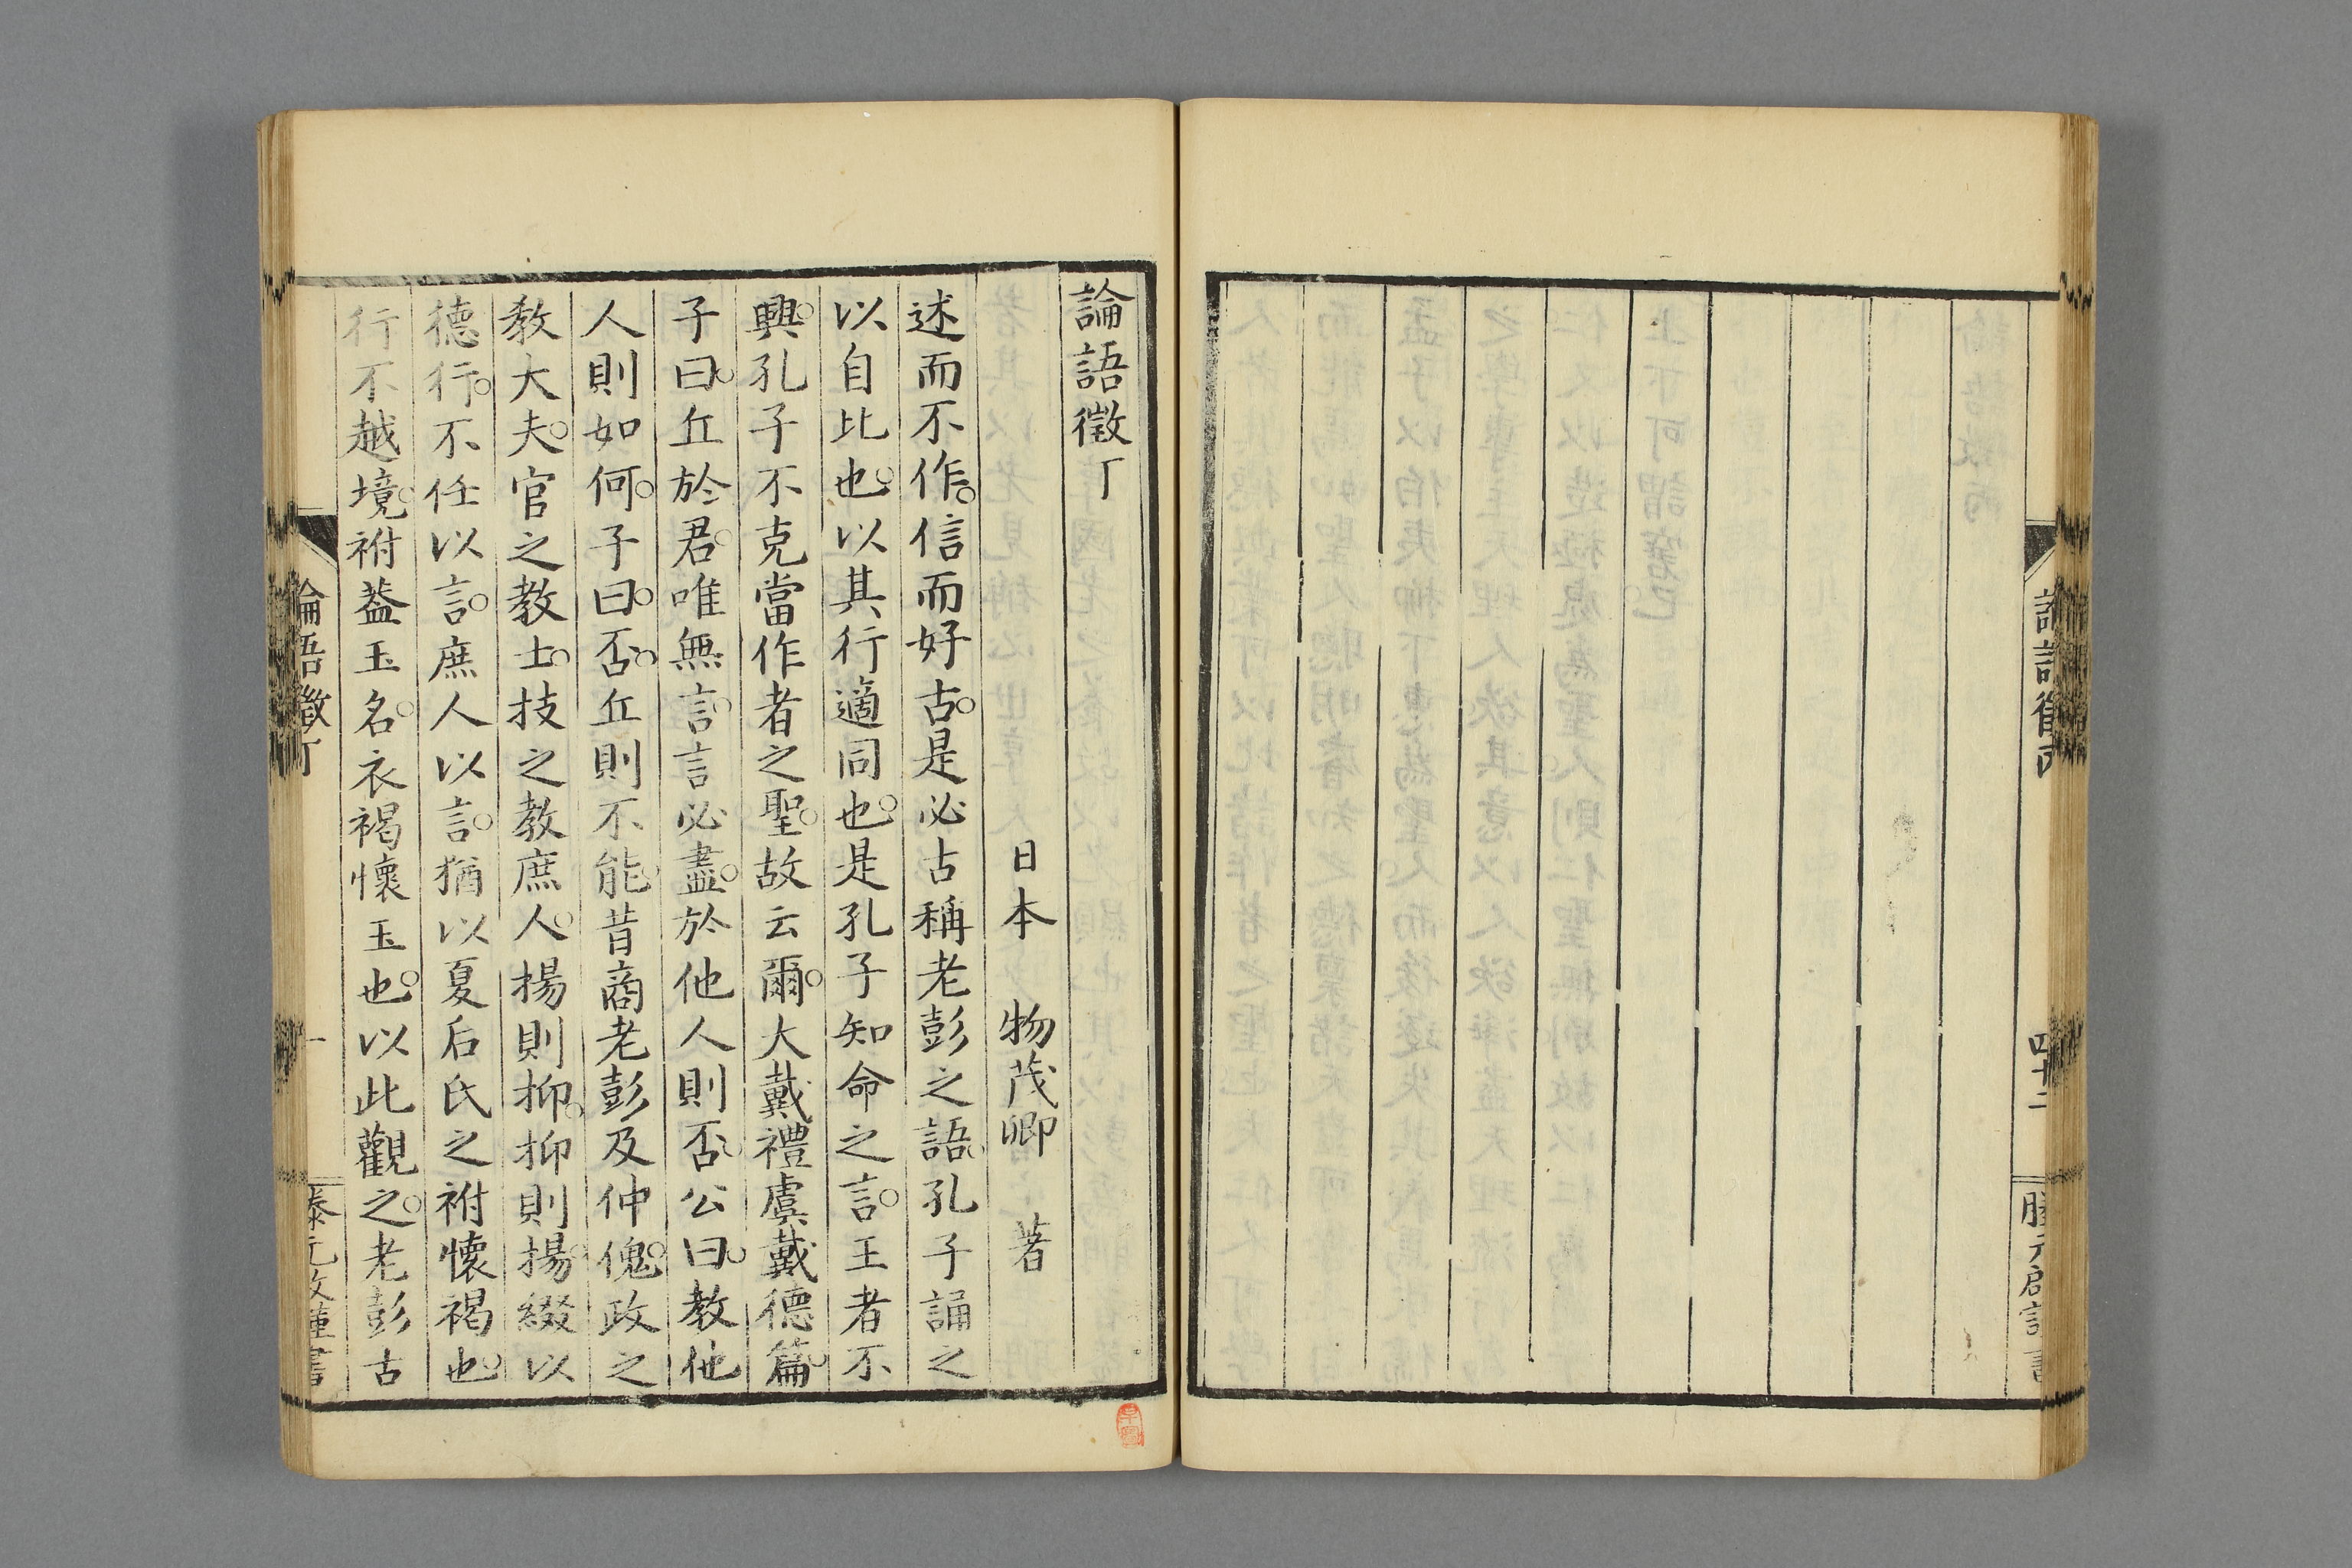 四十二
論語徵丁
日本 物茂卿 著
述而不作。信而好古。是必古稱老彭之語。孔子誦之
以自比也。以其行適同也。是孔子知命之言。王者不
興。孔子不克當作者之聖。故云爾。大戴禮虞戴德篇。
子曰。丘於君。唯無言。言必盡。於他人則否。公曰。教他
人則如何。子曰。否。丘則不能。昔商老彭及仲傀。政之
教大夫。官之教士。技之教庶人。揚則抑。抑則揚。綴以
德行。不任以言。庶人以言。猶以夏后氏之祔懷褐也。
行不越境。祔蓋玉名。衣褐懷玉也。以此觀之。老彭古
論語徵丁
一